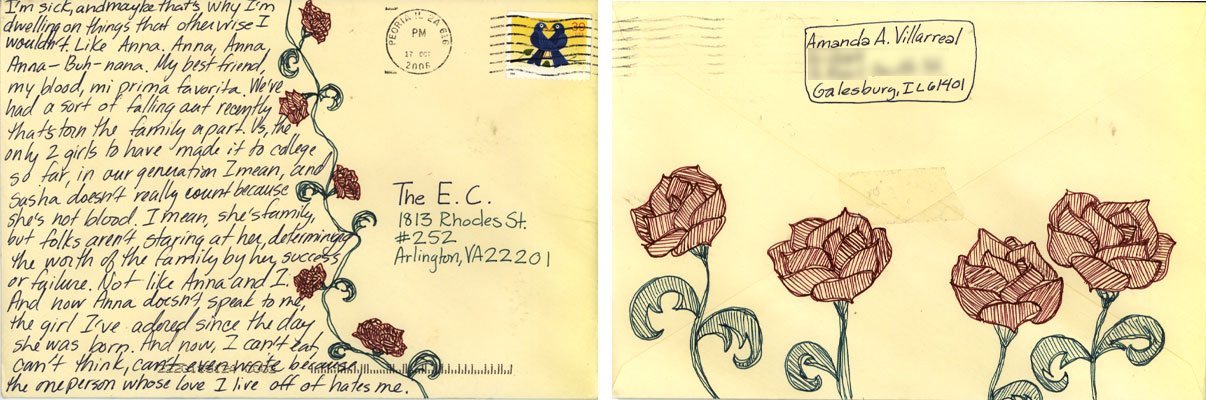 I'm sick, and maybe that's why I'm
dwelling on things that otherwise I
wouldn't. Like Anna. Anna, Anna,
Anna-Buh-nana. My best friend,
my blood, mi prima favorita. We've
had a sort of falling out recently
that's torn the family apart. Us, the
only 2 girls to have made it to college
so far, in our generation I mean, and
Sasha doesn't really count because
she's not blood. I mean, she's family,
but folks aren't staring at her, determining
the worth of the family by her success
or failure. Not like Anna and I.
And now Anna doesn't speak to me,
the girl I've adored since the day
she was born. And now, I can't eat,
can't think, can't even write because
the one person whose love I live off of hates me.
PEORIA IL 2A 616
PM
17 OCT
2006
39
The E.C.
1813 Rhodes St.
#252
Arlington, VA 22201
Amanda A. Villarreal
Galesburg, IL 61401